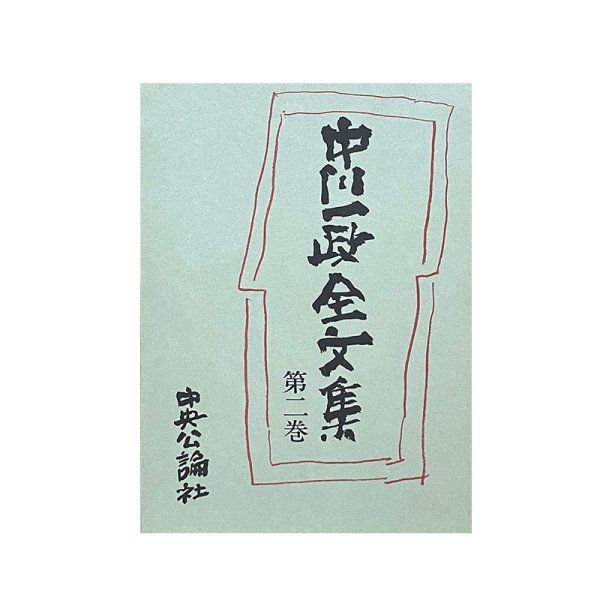 中川一政全文集
第二巻
中央公論社